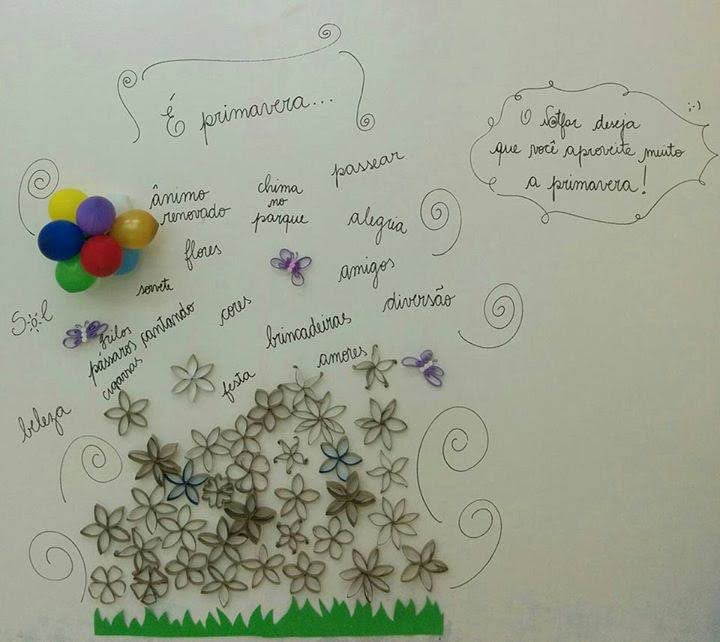 É primavera...
;-)
O Notfar deseja
que você aproveite muito
a primavera!
passear
ânimo
renovado
chima
no
parque
alegria
flores
amigos
sorvete
Sol
cores
diversão
grilos
pássaros cantando
cigarras
brincadeiras
amores
festa
beleza